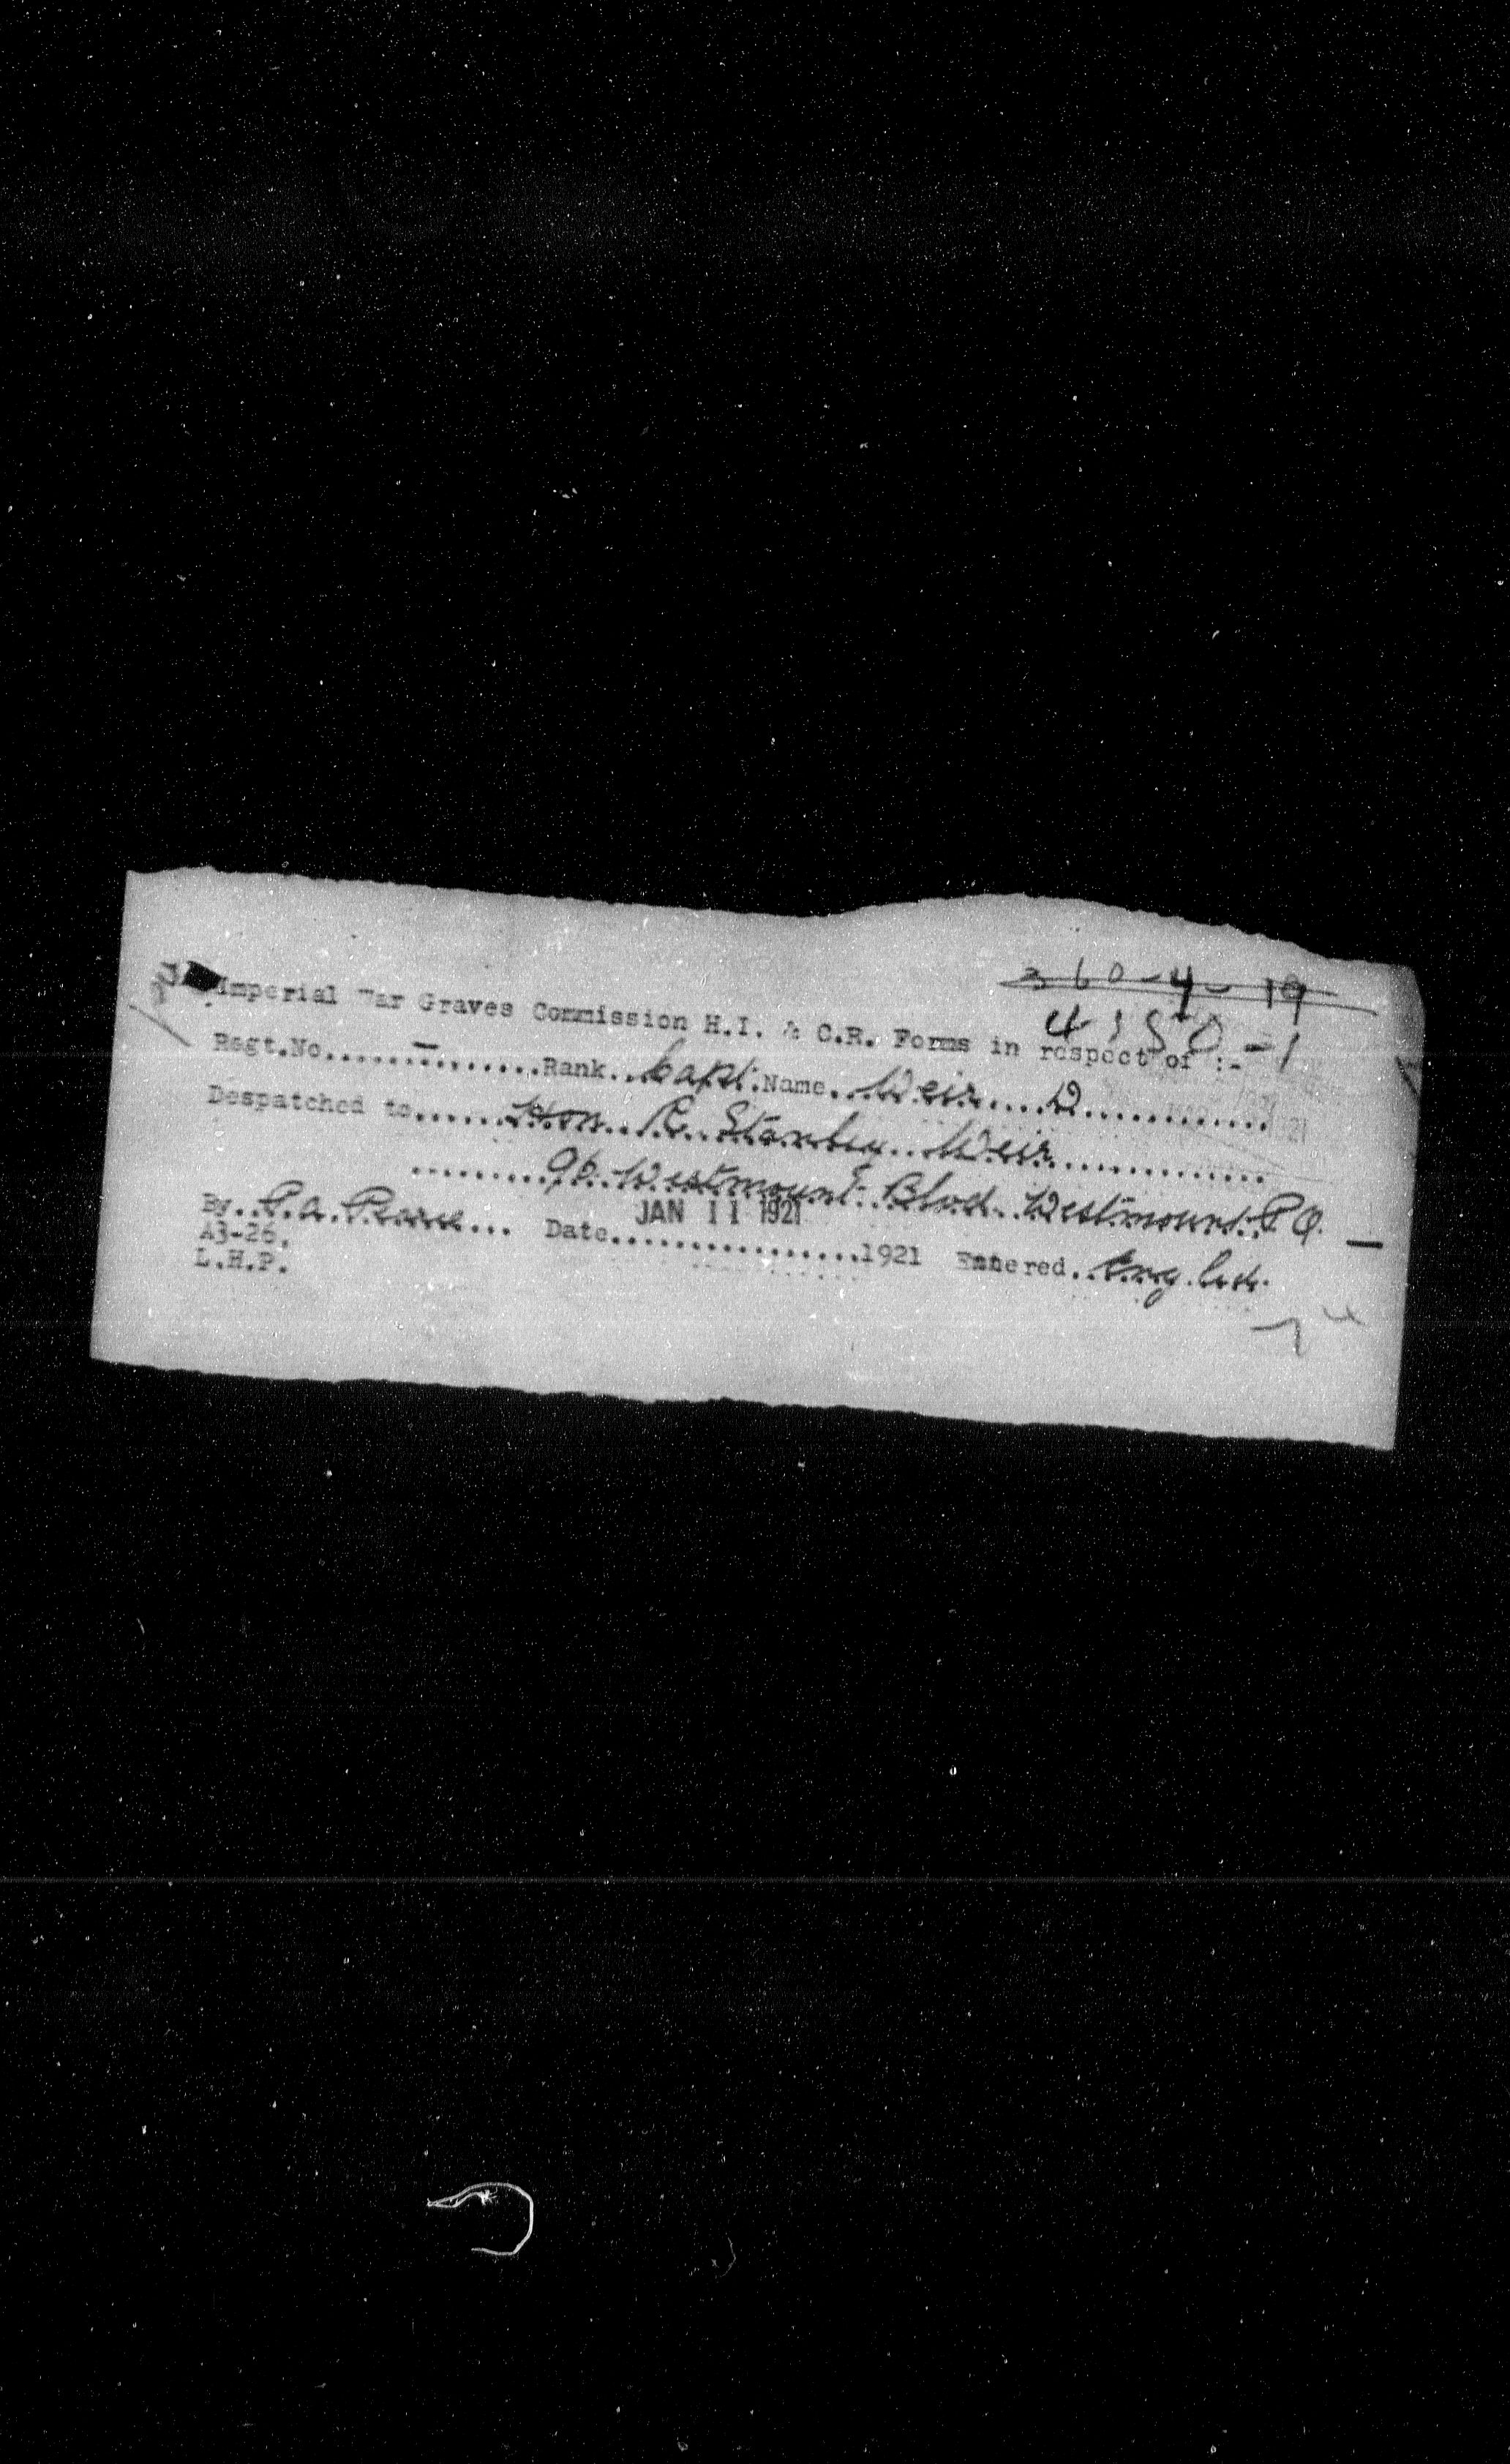 360-4-19
Imperial War Graves Commission H.I. & C.R. Forms in respect of :-
4350-1
Regt.No.......-........Rank..Capt.Name..Weir....D............
Despatched to......Hon..R..Stanley..Weir..............
........96.Westmount.Blvd..Westmount.P.Q. —
JAN 11 1921
By..P.A.Pearce... Date................1921 Entered..
A3-26.
L.H.P.